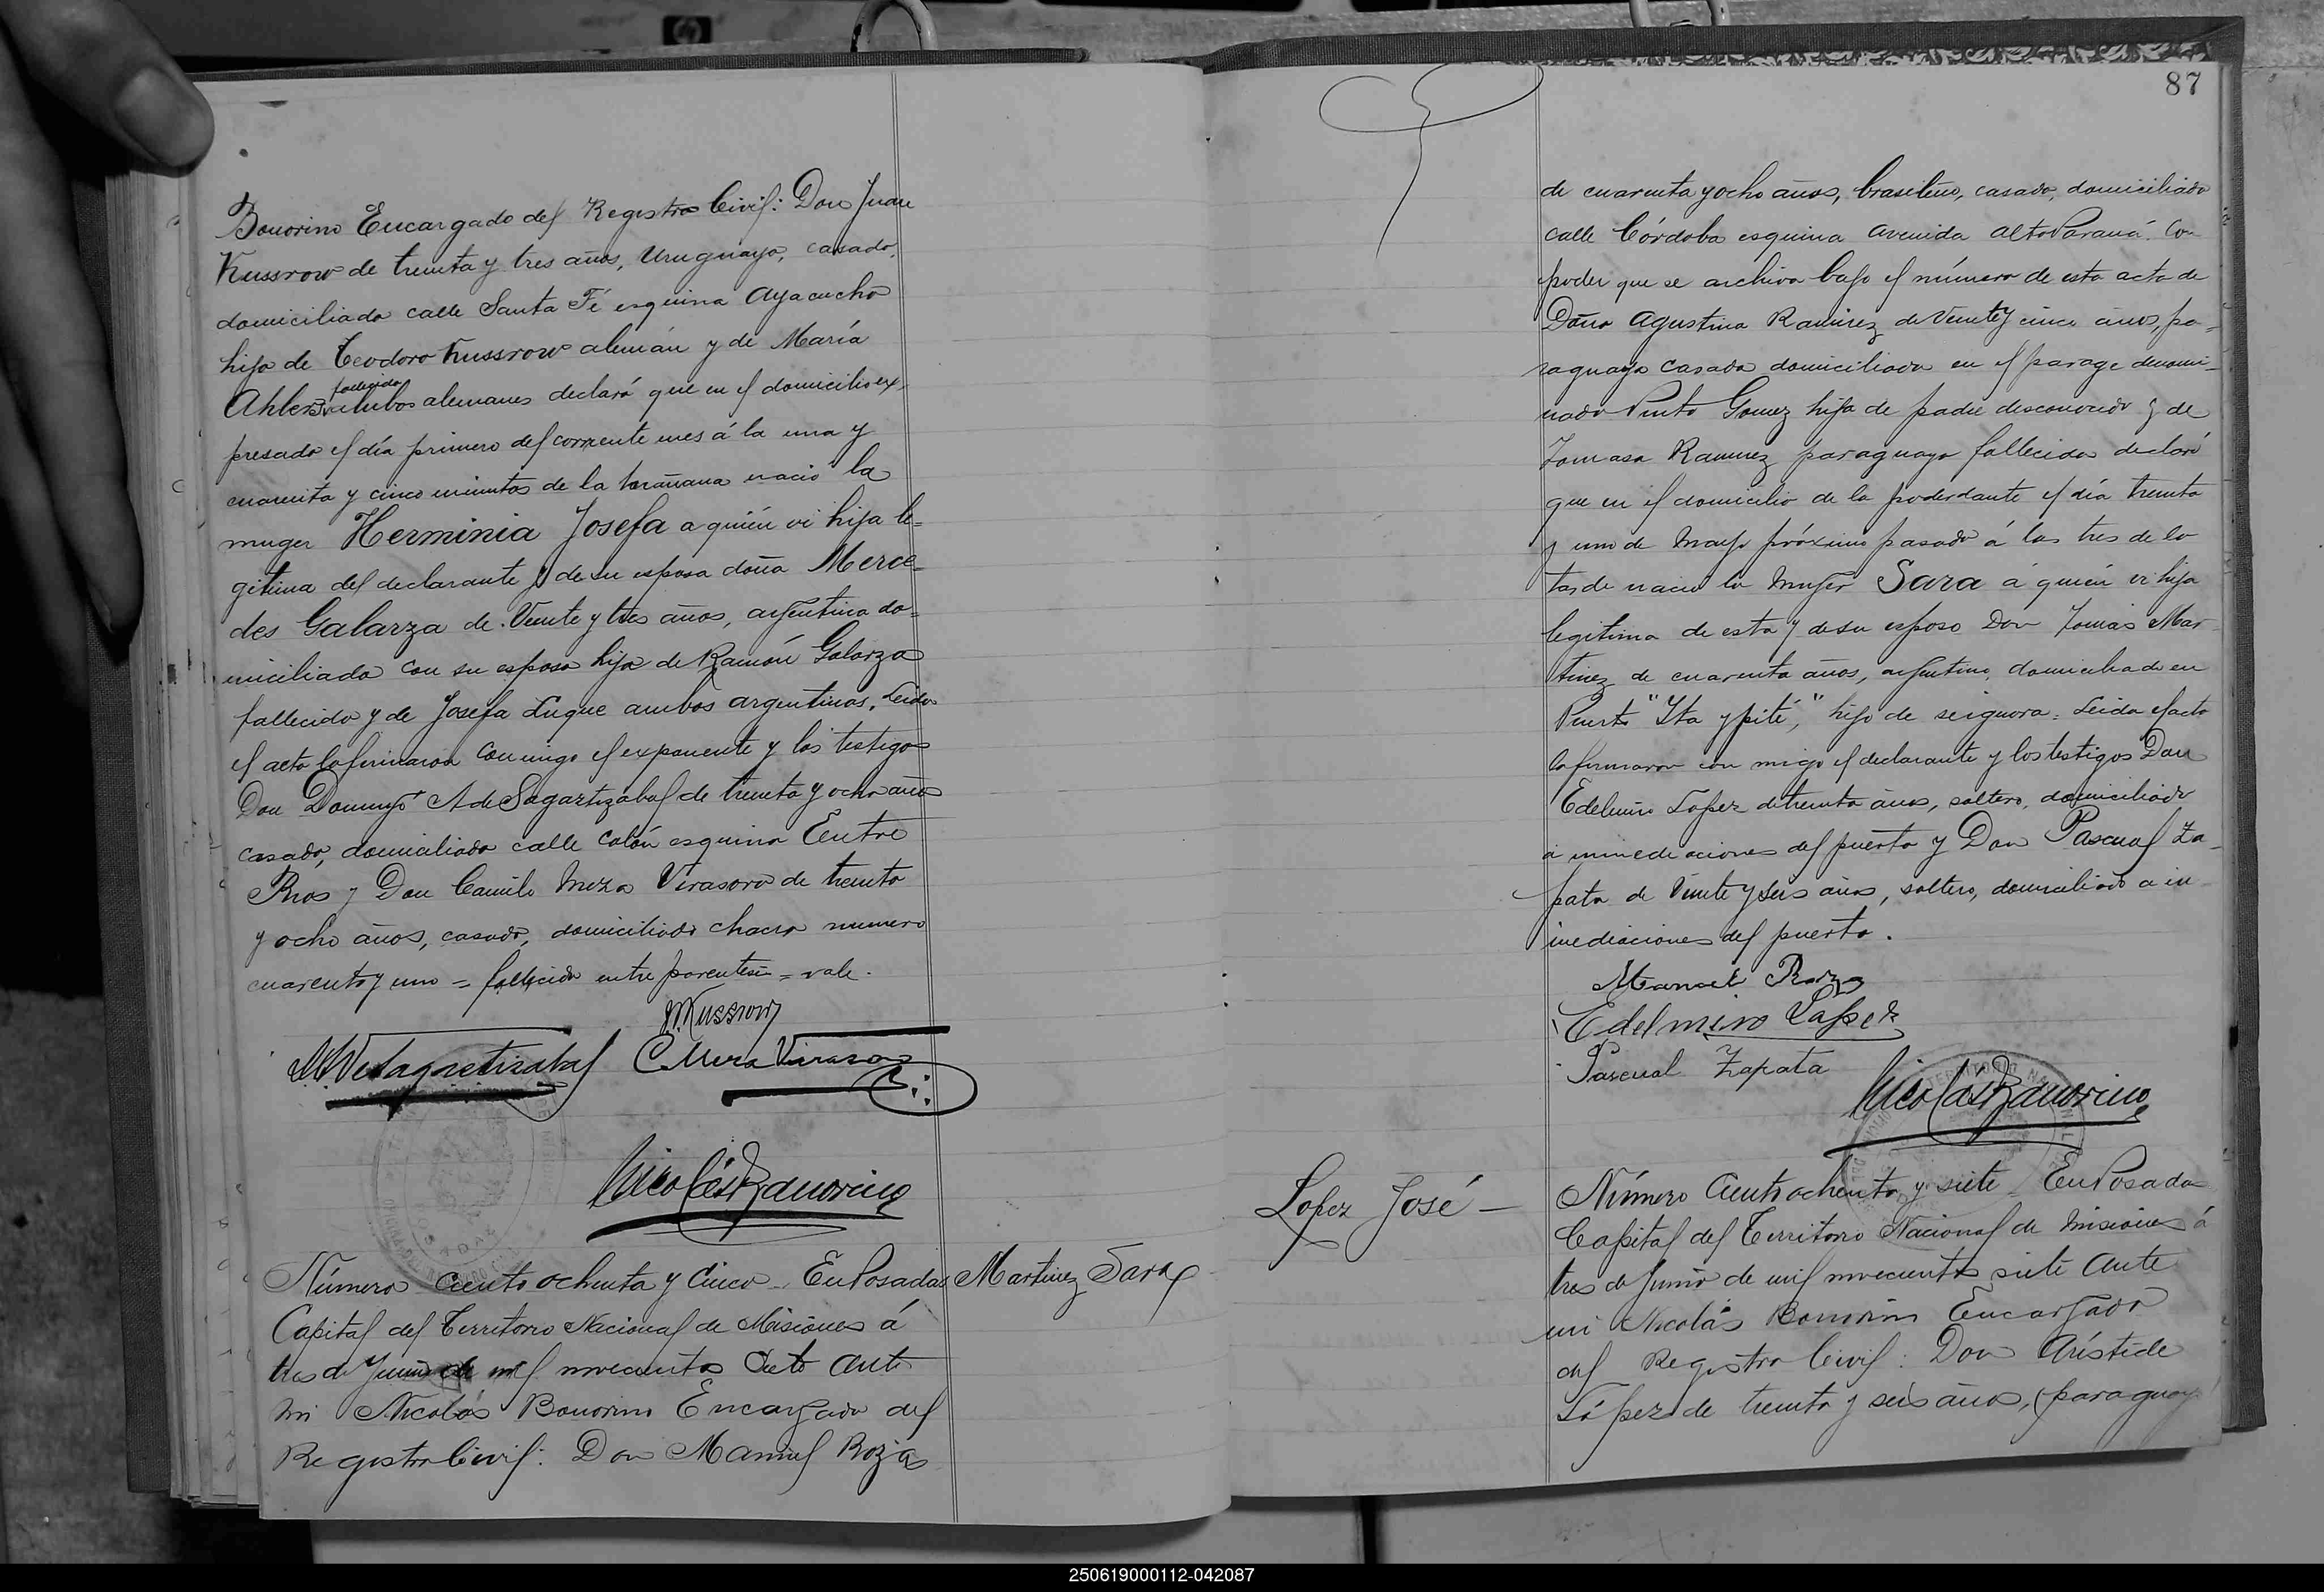 Bonorino Encargado del Registro Civil: Don Juan
Kussrow de treinta y tres años, Uruguayo, casado,
domiciliado calle Santa Fé esquina Ayacucho
hijo de Teodoro Kussrow alemán y de María
fallecida
Ahlers ambos alemanes declaró que en el domicilio ex-
presado el día primero del corriente mes á la una y
cuarenta y cinco minutos de la mañana nació la
muger Herminia Josefa a quién vi hija le=
gitima del declarante y de su esposa doña Merce-
des Galarza de Veinte y tres años, argentina do=
miciliada con su esposo hija de Ramón Galarza
fallecido y de Josefa Luque ambos argentinos. Leida
el acta la firmaron conmigo el exponente y los testigos
Don Domingo A de Sagartizabal de treinta y ocho años
casado, domiciliado calle Colón esquina Entre
Rios y Don Camilo Meza Virasoro de treinta
y ocho años, casado, domiciliado chacra numero
cuarenta y uno = fallecida entre parentesis = vale.
Kussrow
C Meza Virasoro
Nicolás Bonorino
Número ciento ochenta y cinco En Posadas
Martinez Sara
Capital del Territorio Nacional de Misiones á
tres de Junio de mil novecientos siete ante
mi Nicolás Bonorino Encargado del
Registro Civil: Don Manuel Rojas
87
de cuarenta y ocho años, brasileño, casado, domiciliado
calle Córdoba esquina avenida alto Paraná. Con
poder que se archiva bajo el número de esta acta de
Doña Agustina Ramirez de Veinte y cinco años, pa=
raguaya casada domiciliada en el parage denomi-
nado Pinto Gomez hija de padre desconocido y de
Tomasa Ramirez paraguaya fallecida declaró
que en el domicilio de la poderdante el día treinta
y uno de Mayo próximo pasado á las tres de la
tarde nació la Mujer Sara á quién vi hija
legitima de esta y de su esposo Don Tomás Mar-
tinez de cuarenta años, argentino, domiciliado en
Puerto "Ita ypité," hijo de seignora. Leida el acta
la firmaron con migo el declarante y los testigos Don
Edelmiro Lopez de treinta años, soltero, domiciliado
a inmediaciones del puerto y Don Pascual Za-
pata de Veinte y seis años, soltero, domiciliado a in-
mediaciones del puerto.
Manuel Rojas
Edelmiro Lopez
Pascual Zapata
Nicolás Bonorino
Lopez José —
Número Ciento ochenta y siete En Posadas
Capital del Territorio Nacional de Misiones á
tres de Junio de mil novecientos siete Ante
mi Nicolás Bonorino Encargado
del Registro Civil: Don Arístide
López de treinta y seis años, paraguay
250619000112-042087